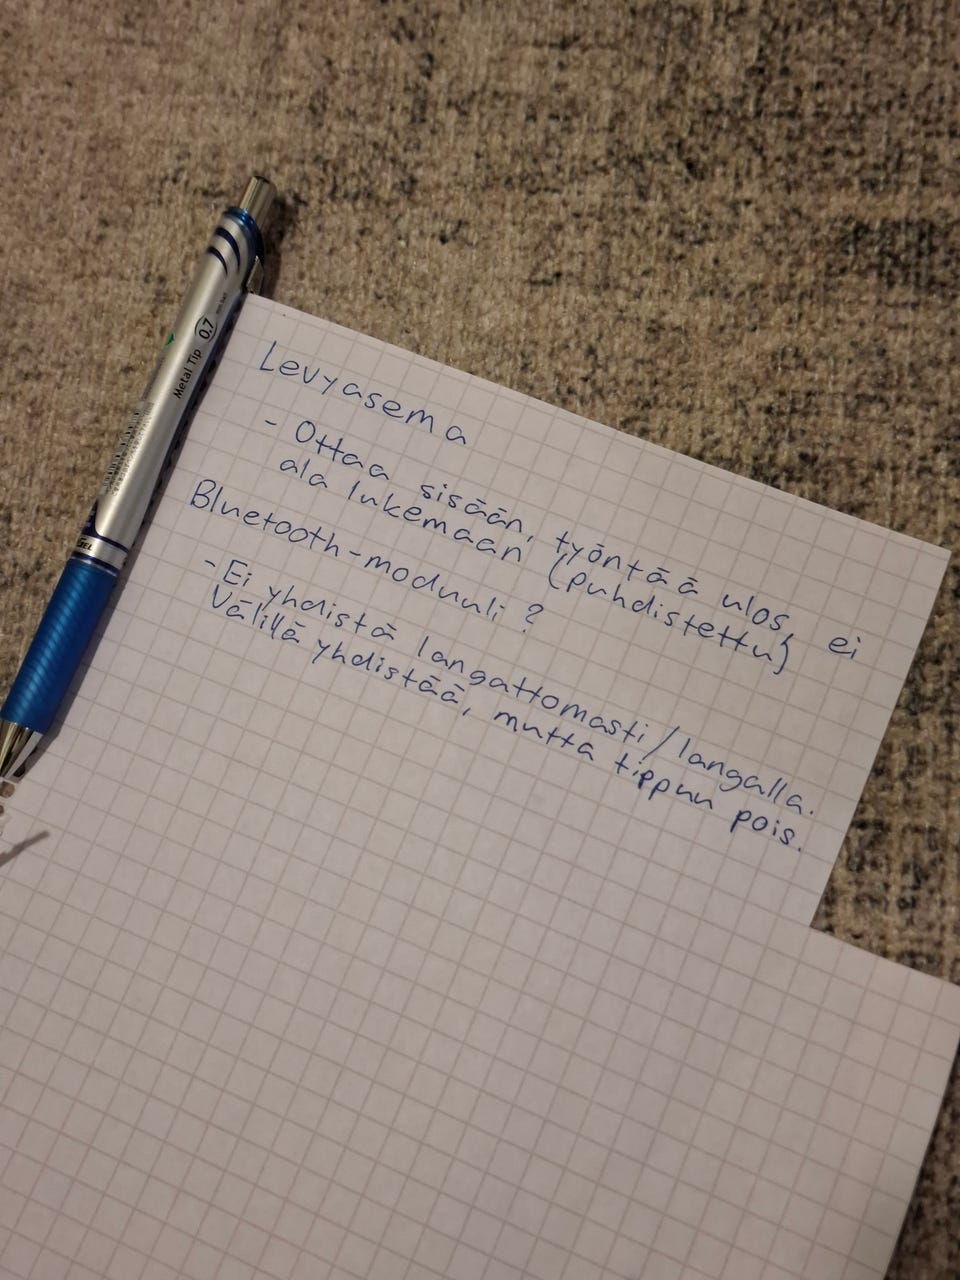 Levyasema
- Ottaa sisään, työntää ulos, ei
ala lukemaan (puhdistettu)
Bluetooth-moduuli?
- Ei yhdistä langattomasti/langalla.
Välillä yhdistää, mutta tippuu pois.
Metal Tip 0.7
GEL